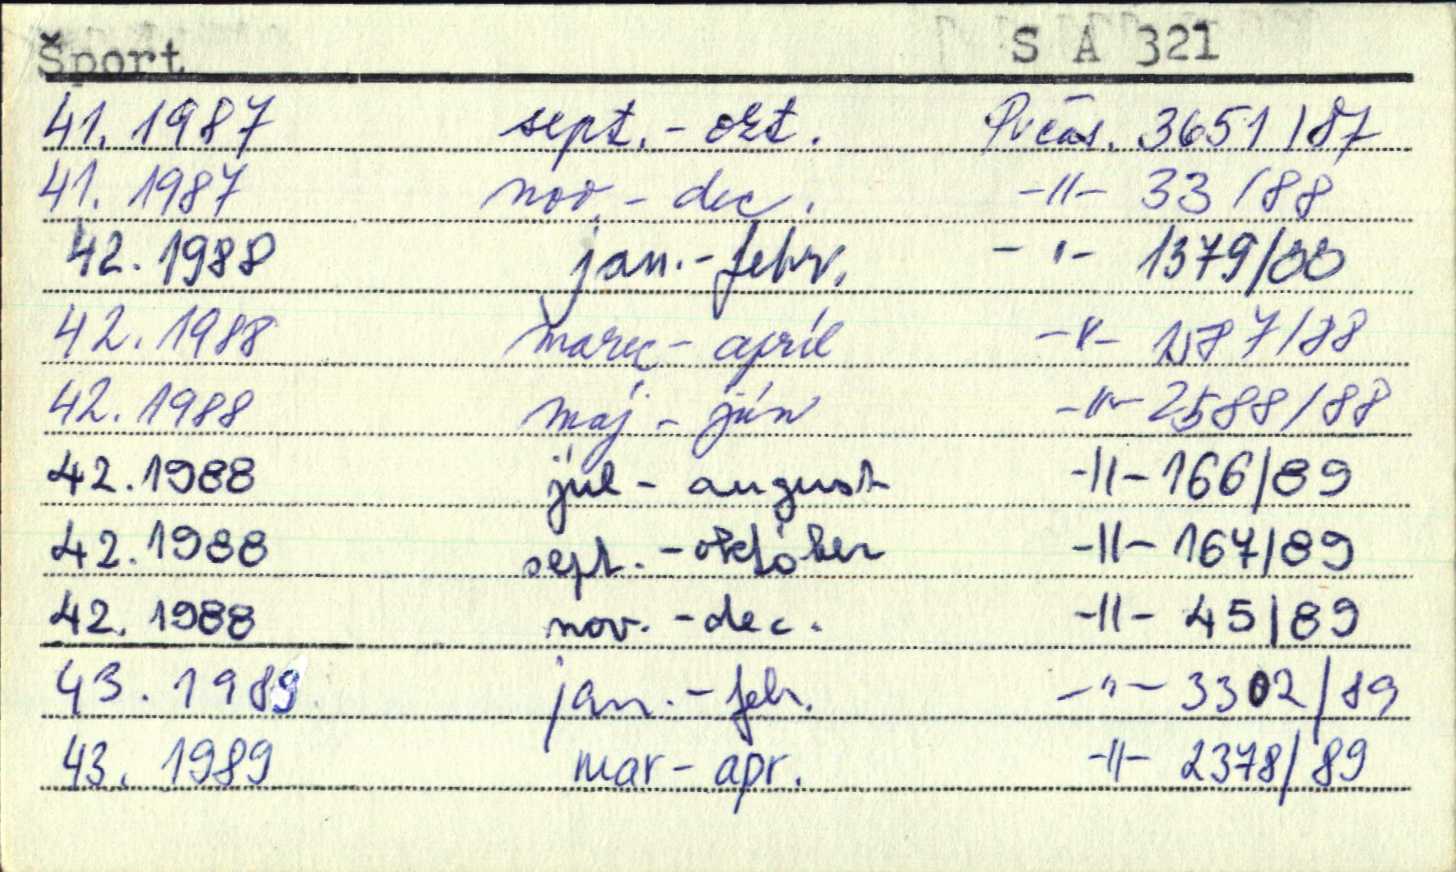 Šport S A 321
41. 1987 sept. - okt. Prčas. 3651/87
41. 1987 nov. - dec. -"- 33/88
42. 1988 jan. - febr. -"- 1379/88
42. 1988 marec - apríl -"-
42. 1988 máj - jún -"- 2588/88
42. 1988 júl - august -"- 166/89
42. 1988 sept. - október -"- 167/89
42. 1988 nov. - dec. -"- 45/89
43. 1989 jan. - feb. -"- 3302/89
43. 1989 mar - apr. -"- 2378/89